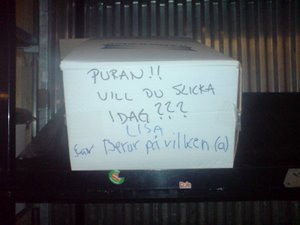 PURAN!!
VILL DU SLICKA
IDAG???
LISA
Beror på vilken (a)